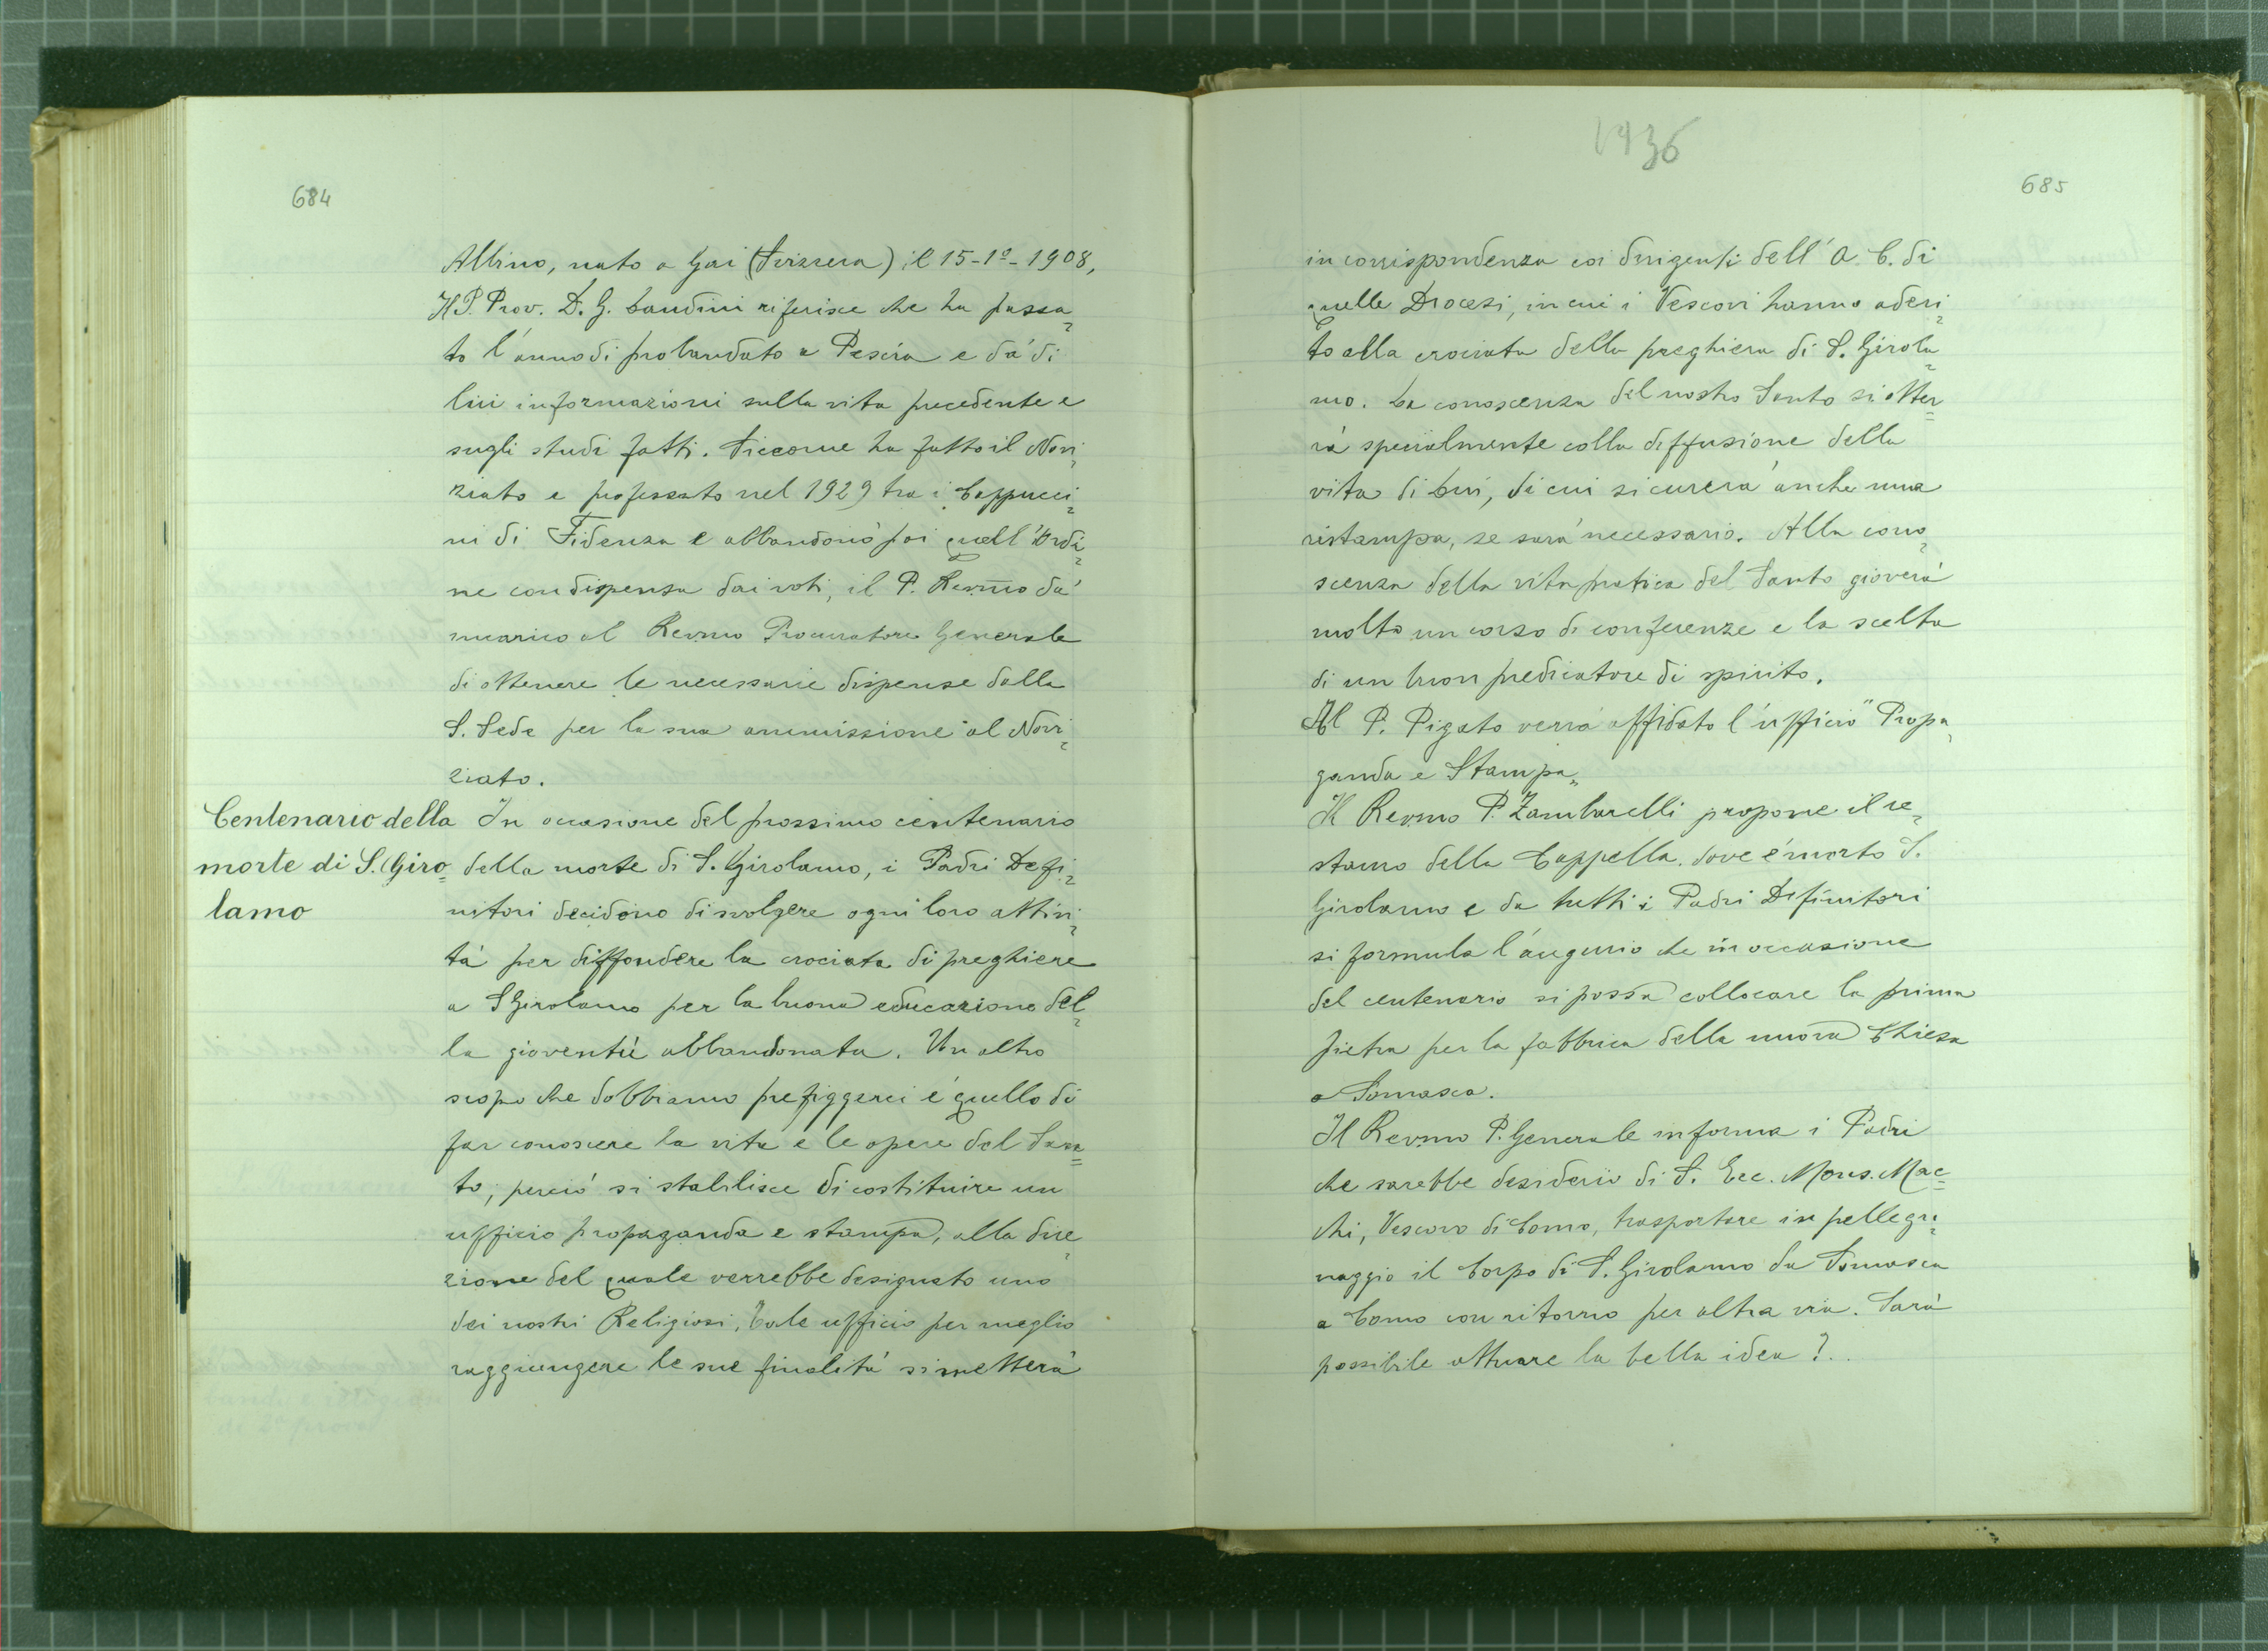 684
Albino, nato a Gai (Svizzera) il 15-1º-1908,
Il P. Prov. D. G. Landini riferisce che ha passa
to l'anno di probandato a Pescia e dà di
lui informazioni sulla vita precedente e
sugli studi fatti. Siccome ha fatto il Novi
ziato e professato nel 1929 tra i Cappucci
ni di Fidenza e abbandonò poi quell'Ordi
ne con dispensa dai voti, il P. Revmo dà
incarico al Revmo Procuratore Generale
di ottenere le necessarie dispense dalla
S. Sede per la sua ammissione al Novi
ziato.
Centenario della
morte di S. Giro
lamo
In occasione del prossimo centenario
della morte di S. Girolamo, i Padri Defi
nitori decidono di svolgere ogni loro attivi
tà per diffondere la crociata di preghiere
a S Girolamo per la buona educazione del
la gioventù abbandonata. Un altro
scopo che dobbiamo prefiggerci è quello di
far conoscere la vita e le opere del San
to; perciò si stabilisce di costituire un
ufficio propaganda e stampa, alla dire
zione del quale verrebbe designato uno
dei nostri Religiosi, Tale ufficio per meglio
raggiungere le sue finalità si metterà
1936
685
in corrispondenza coi dirigenti dell'A. C. di
quelle Diocesi, in cui i Vescovi hanno aderi
to alla crociata della preghiera di S. Girola
mo. La conoscenza del nostro Santo si otter
rà specialmente colla diffusione della
vita di Lui, di cui si curerà anche una
ristampa, se sarà necessario. Alla cono
scenza della vita pratica del Santo gioverà
molto un corso di conferenze e la scelta
di un buon predicatore di spirito.
Al P. Pigato verrà affidato l'ufficio "Propa
ganda e Stampa„
Il Revmo P. Zambarelli propone il re
stauro della Cappella, dove è morto S.
Girolamo e da tutti i Padri Definitori
si formula l'augurio che in occasione
del centenario si possa collocare la prima
pietra per la fabbrica della nuova Chiesa
a Somasca.
Il Revmo P. Generale informa i Padri
che sarebbe desiderio di S. Ecc. Mons. Mac
chi, Vescovo di Como, trasportare in pellegri
naggio il Corpo di S. Girolamo da Somasca
a Como con ritorno per altra via. Sarà
possibile attuare la bella idea?..